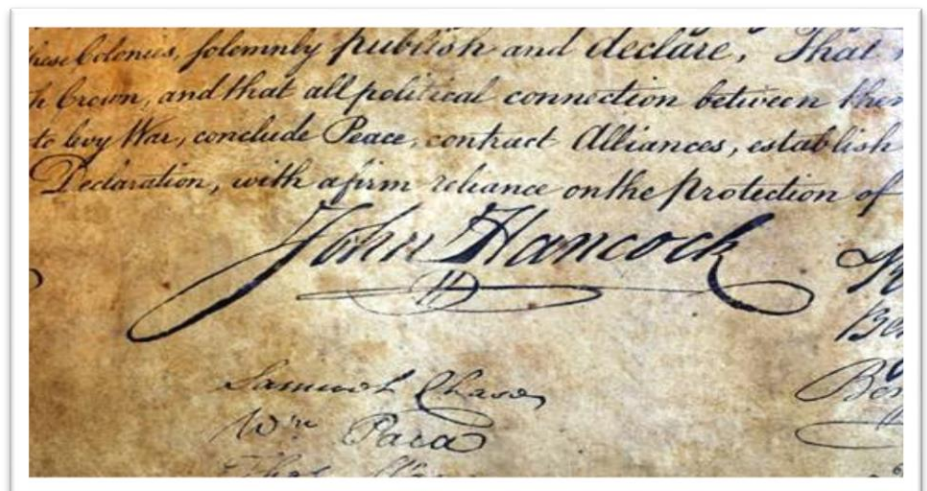 these Colonies, solemnly publish and declare, That
h Crown, and that all political connection between them
to levy War, conclude Peace, contract Alliances, establish
Declaration, with a firm reliance on the Protection of
John Hancock
Samuel Chase
Wm Paca
Thos